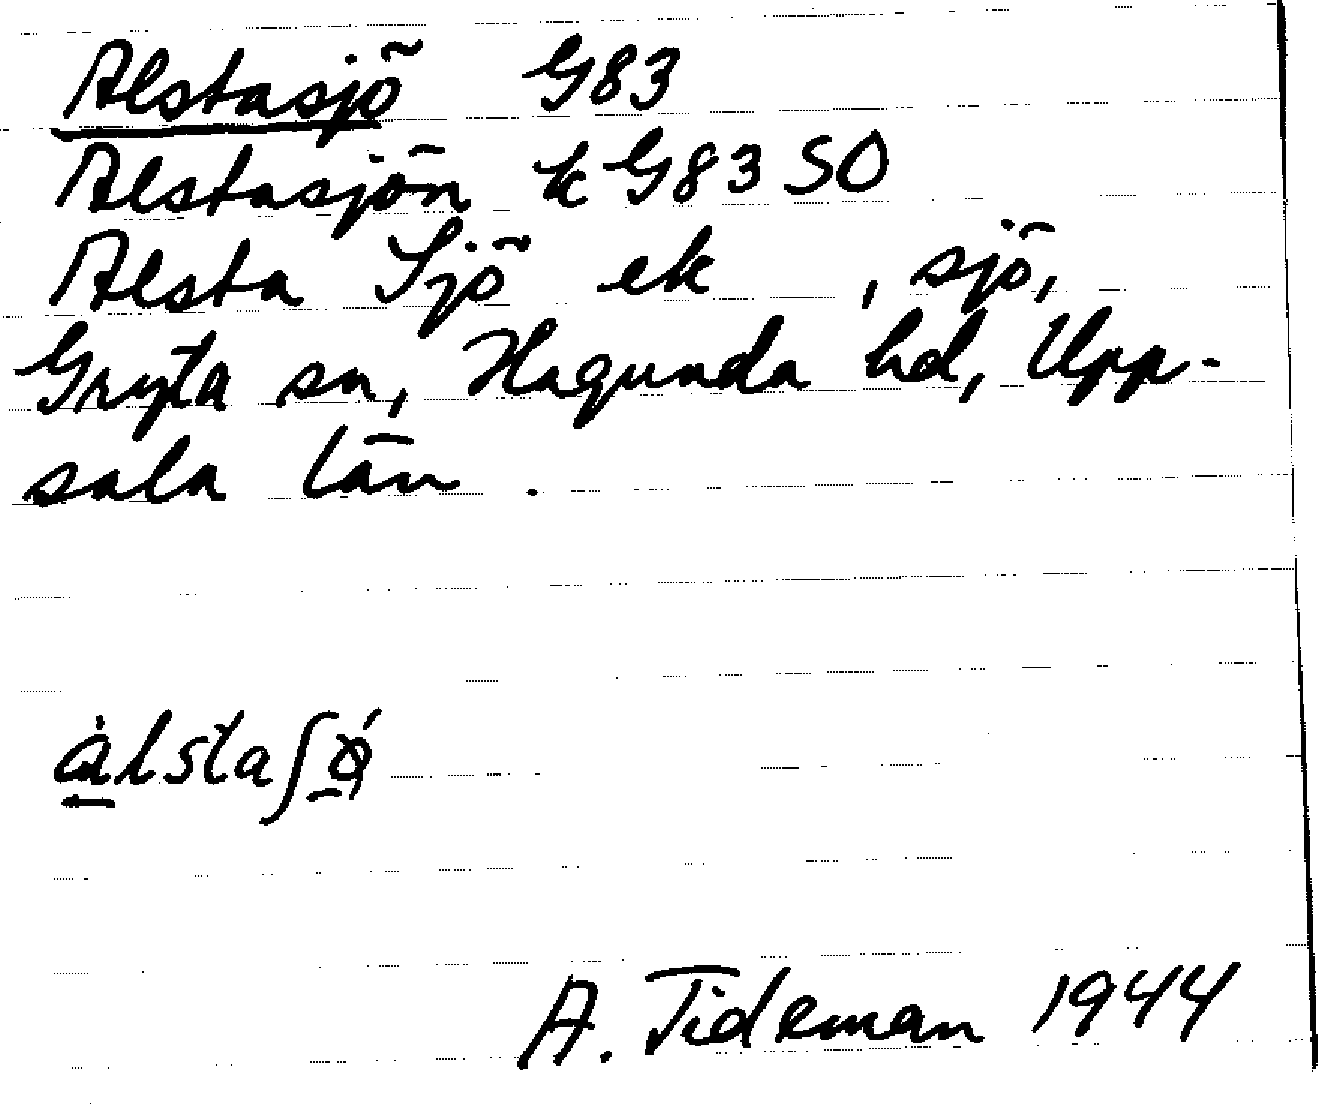 Alstasjö G83
Alstasjön k G83 SO
Alsta Sjö ek , sjö,
Gryta sn, Hagunda hd, Upp-
sala län .
A. Tideman 1944